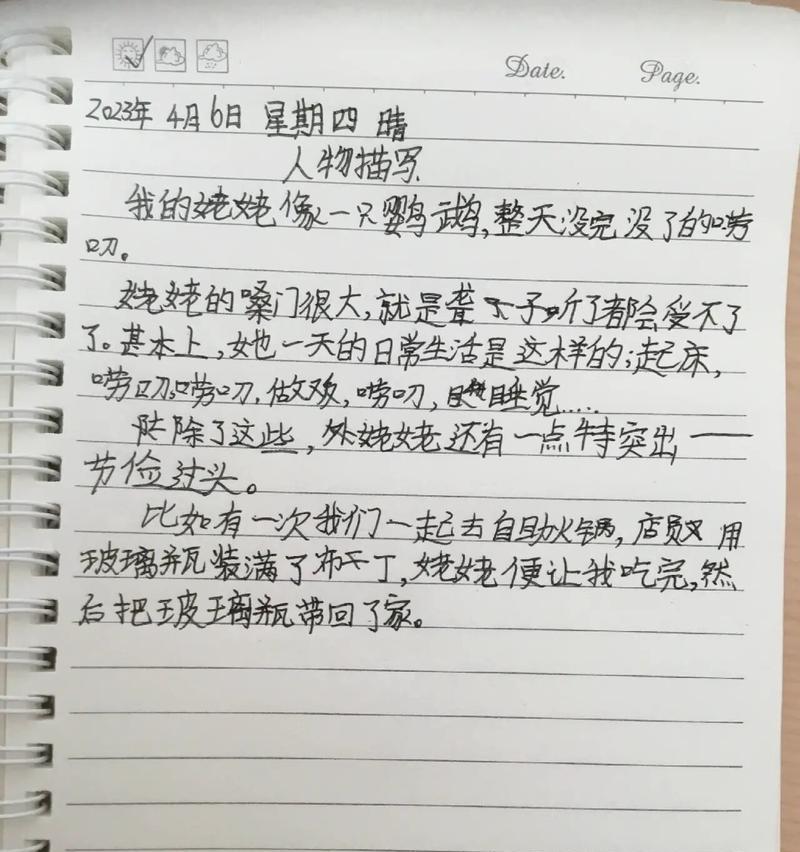 Date. Page.
2023年 4月6日 星期四 晴
人物描写.
我的姥姥像一只鹦鸟武鸟,整天没完没了的唠
叨。
姥姥的嗓门很大,就是聋子听了都会受不了
了。甚本上,她一天的日常生活是这样的;起床,
唠叨,唠叨.做饭,唠叨,睡觉.....
除了这些,姥姥还有一点特突出——
节俭过头。
比如有一次我们一起去自助火锅,店员用
玻璃瓶装满了布丁,姥姥便让我吃完,然
后把玻璃瓶带回了家。